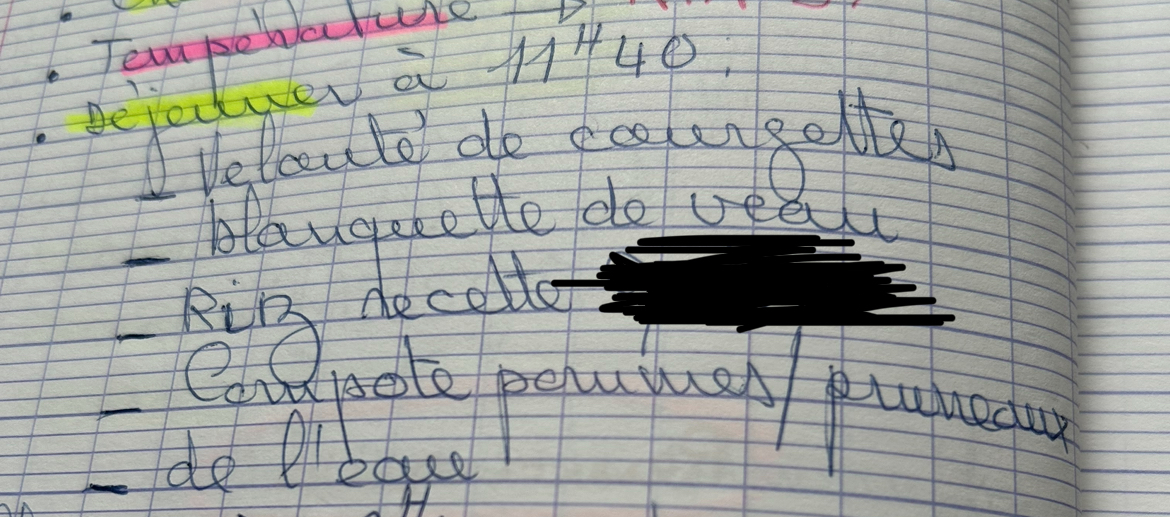 • Température →
• Déjeuner à 11H40 :
- Velouté de courgettes
- blanquette de veau
- Riz recette
- Compote pommes/pruneaux
- de l'eau